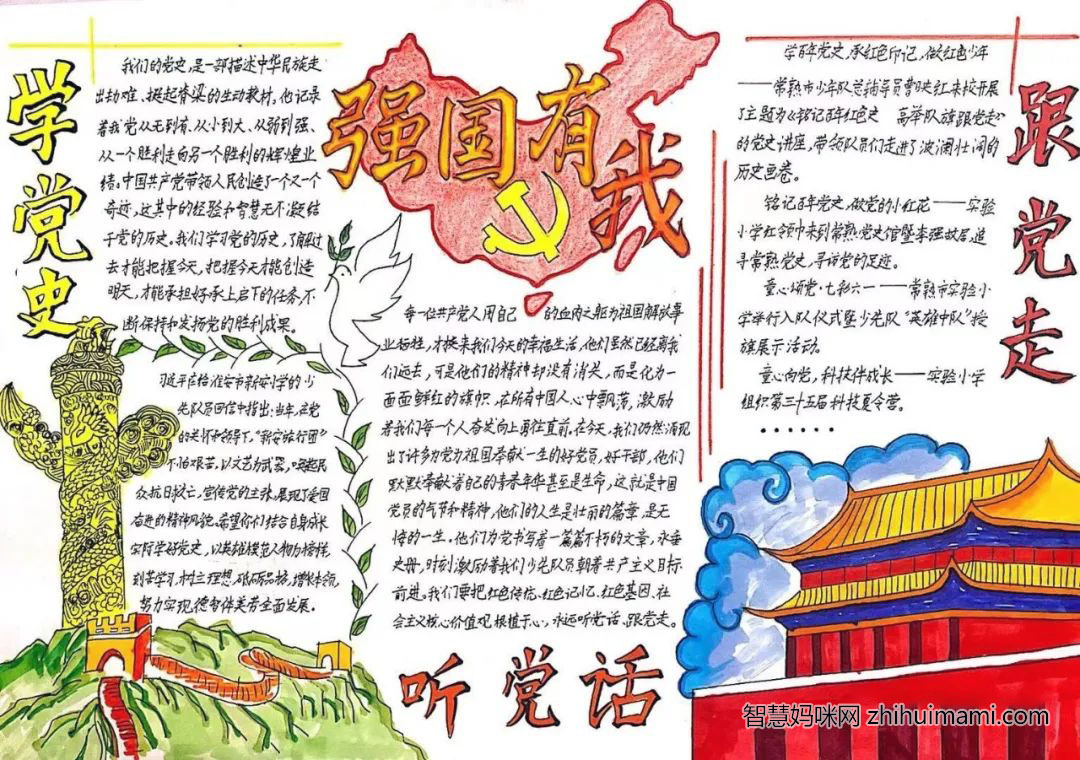 学党史
我们的党史，是一部描述中华民族走
出劫难、挺起脊梁的生动教材，他记录
着我党从无到有、从小到大、从弱到强、
从一个胜利走向另一个胜利的辉煌业
绩。中国共产党带领人民创造了一个又一个
奇迹，这其中的经验和智慧无不凝结
于党的历史。我们学习党的历史，了解过
去才能把握今天，把握今天才能创造
明天，才能承担好承上启下的任务，不
断保持和发扬党的胜利成果。
习近平在给淮安市新安小学的少
先队员回信中指出：当年，在党
的关怀和领导下，“新安旅行团”
不怕艰苦，以文艺为武器，唤起民
众抗日救亡，宣传党的主张，展现了爱国
奋进的精神风貌。希望你们结合自身成长
实际学好党史，以英雄模范人物为榜样，
刻苦学习，树立理想，砥砺品格，增长本领，
努力实现德智体美劳全面发展。
强国有我
每一位共产党人用自己的血肉之躯为祖国解放事
业牺牲，才换来我们今天的幸福生活，他们虽然已经离我
们远去，可是他们的精神却没有消失，而是化为一
面面鲜红的旗帜，在所有中国人心中飘荡，激励
着我们每一个人奋发向上勇往直前。在今天，我们仍然涌现
出了许多为党为祖国奉献一生的好党员，好干部，他们
默默奉献着自己的青春年华甚至是生命，这就是中国
党员的气节和精神，他们的人生是壮丽的篇章，是无
悔的一生。他们为党书写着一篇篇不朽的文章，永垂
史册，时刻激励着我们少先队员朝着共产主义目标
前进。我们要把红色传统、红色记忆、红色基因、社
会主义核心价值观根植于心，永远听党话、跟党走。
听党话
学百年党史，承红色印记，做红色少年
——常熟市少年队总辅导员曹映红来校开展
了主题为《铭记百年红色史 高举队旗跟党走》
的党史讲座，带领队员们走进了波澜壮阔的
历史画卷。
铭记百年党史，做党的小红花——实验
小学红领巾来到常熟党史馆暨李强故居，追
寻常熟党史，寻访党的足迹。
童心颂党·七彩六一——常熟市实验小
学举行入队仪式暨少先队“英雄中队”授
旗展示活动。
童心向党，科技伴成长——实验小学
组织第三十五届科技夏令营。
······
跟党走
智慧妈咪网 zhihuimami.com